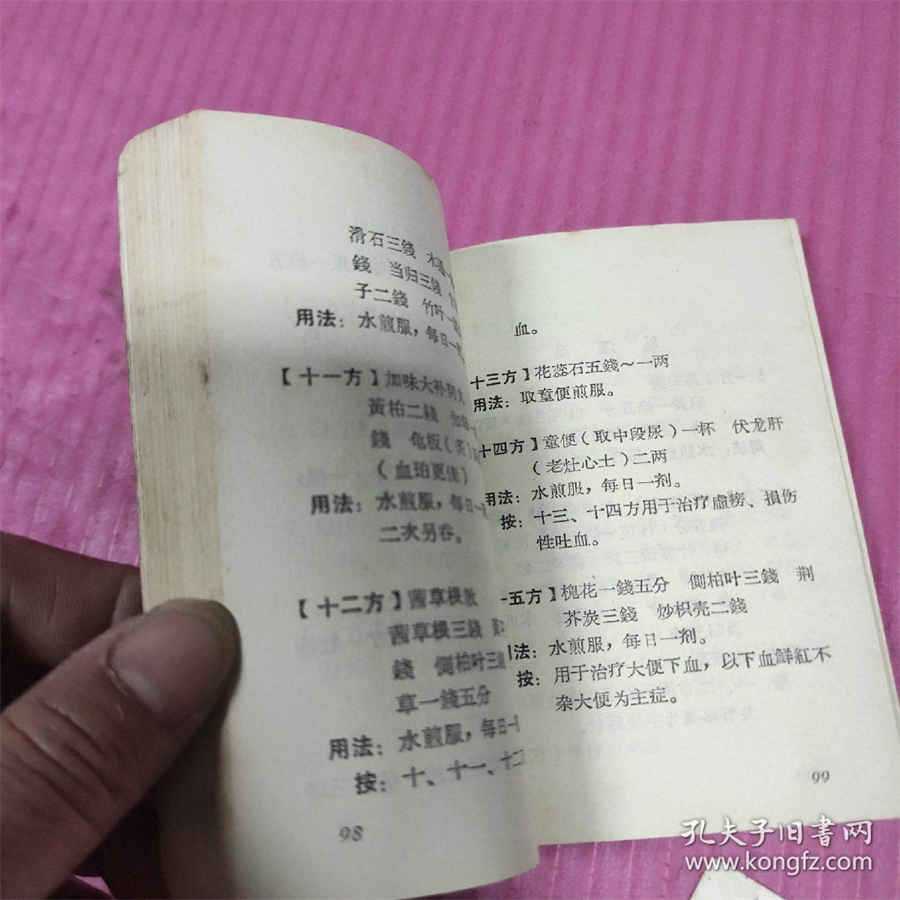 滑石三錢 木通
錢 当归三錢
子二錢 竹叶一
用法：水煎服，每日一剂
【十一方】加味大补阴丸
黃柏二錢 知母
錢 龟板（炙）
（血珀更佳）
用法：水煎服，每日一
二次另吞。
【十二方】茜草根散
茜草根三錢
錢 侧柏叶三
草一錢五分
用法：水煎服，每日一
按：十、十一、十二
98
血。
十三方】花蕊石五錢～一两
用法：取童便煎服。
十四方】童便（取中段尿）一杯 伏龙肝
（老灶心土）二两
用法：水煎服，每日一剂。
按：十三、十四方用于治疗虛痨、損伤
性吐血。
五方】槐花一錢五分 側柏叶三錢 荆
芥炭三錢 炒枳壳二錢
用法：水煎服，每日一剂。
按：用于治疗大便下血，以下血鮮紅不
杂大便为主症。
99
孔夫子旧書网
www.kongfz.com